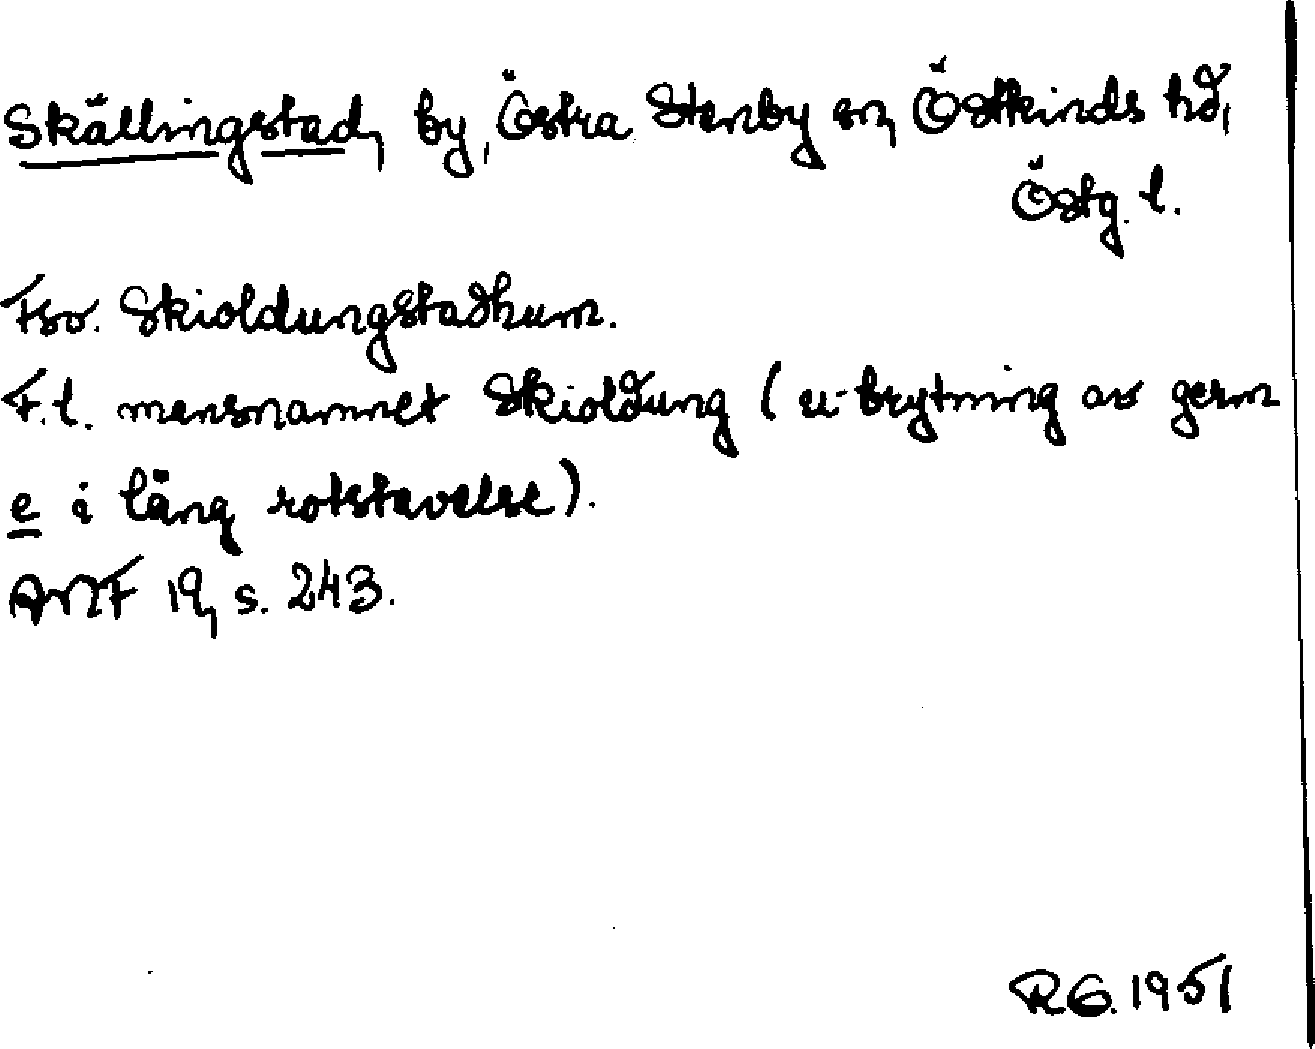 Skällingstad, by, Östra Stenby sn, Östkinds hd,
Östg. l.
Fsv. Skioldungstadhum.
F.l. mansnamnet Skioldung (u-brytning av germ
e i lång rotstavelse).
ANF 19, s. 243.
R.G. 1951